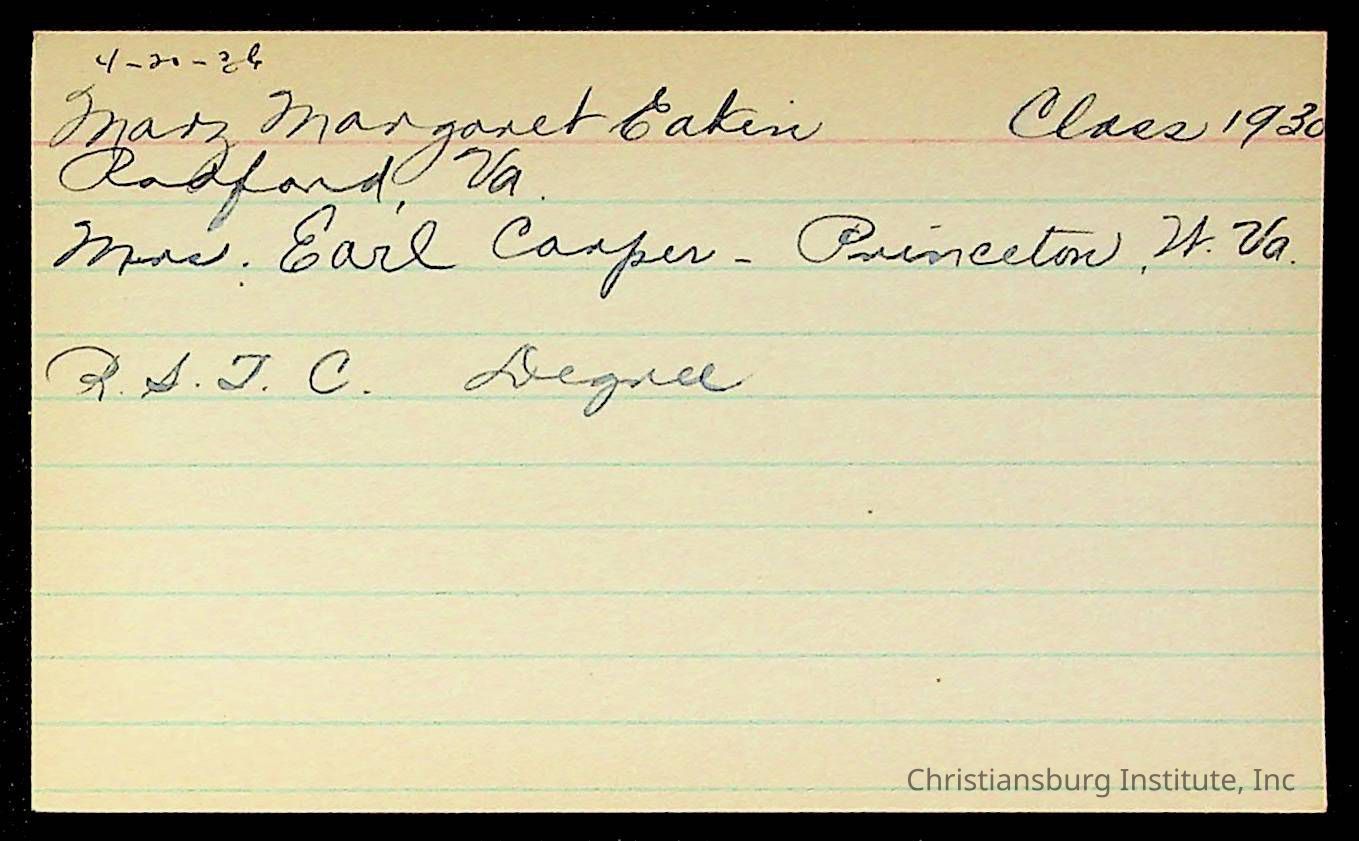 4-20-26
Mary Margaret Eakin Class 1930
Radford, Va.
Mrs. Earl Carper - Princeton, W. Va.
R. S. T. C. Degree
Christiansburg Institute, Inc